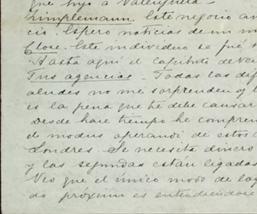 que hijo a Valenzuela.
Zimplemann. Este negocio an
cio. Espero noticias de mi
Close. Este individuo se fué
Hasta aquí el capítulo de
Tus agencias. Todas las dif
aludes no me sorprenden y
es la pena que he debe causar
Desde hace tiempo he compren
do modus operandi de estos
Londres. Se necesita dinero
y las segundas están ligadas
Veo que el único modo de
do próximo es entendiéndose